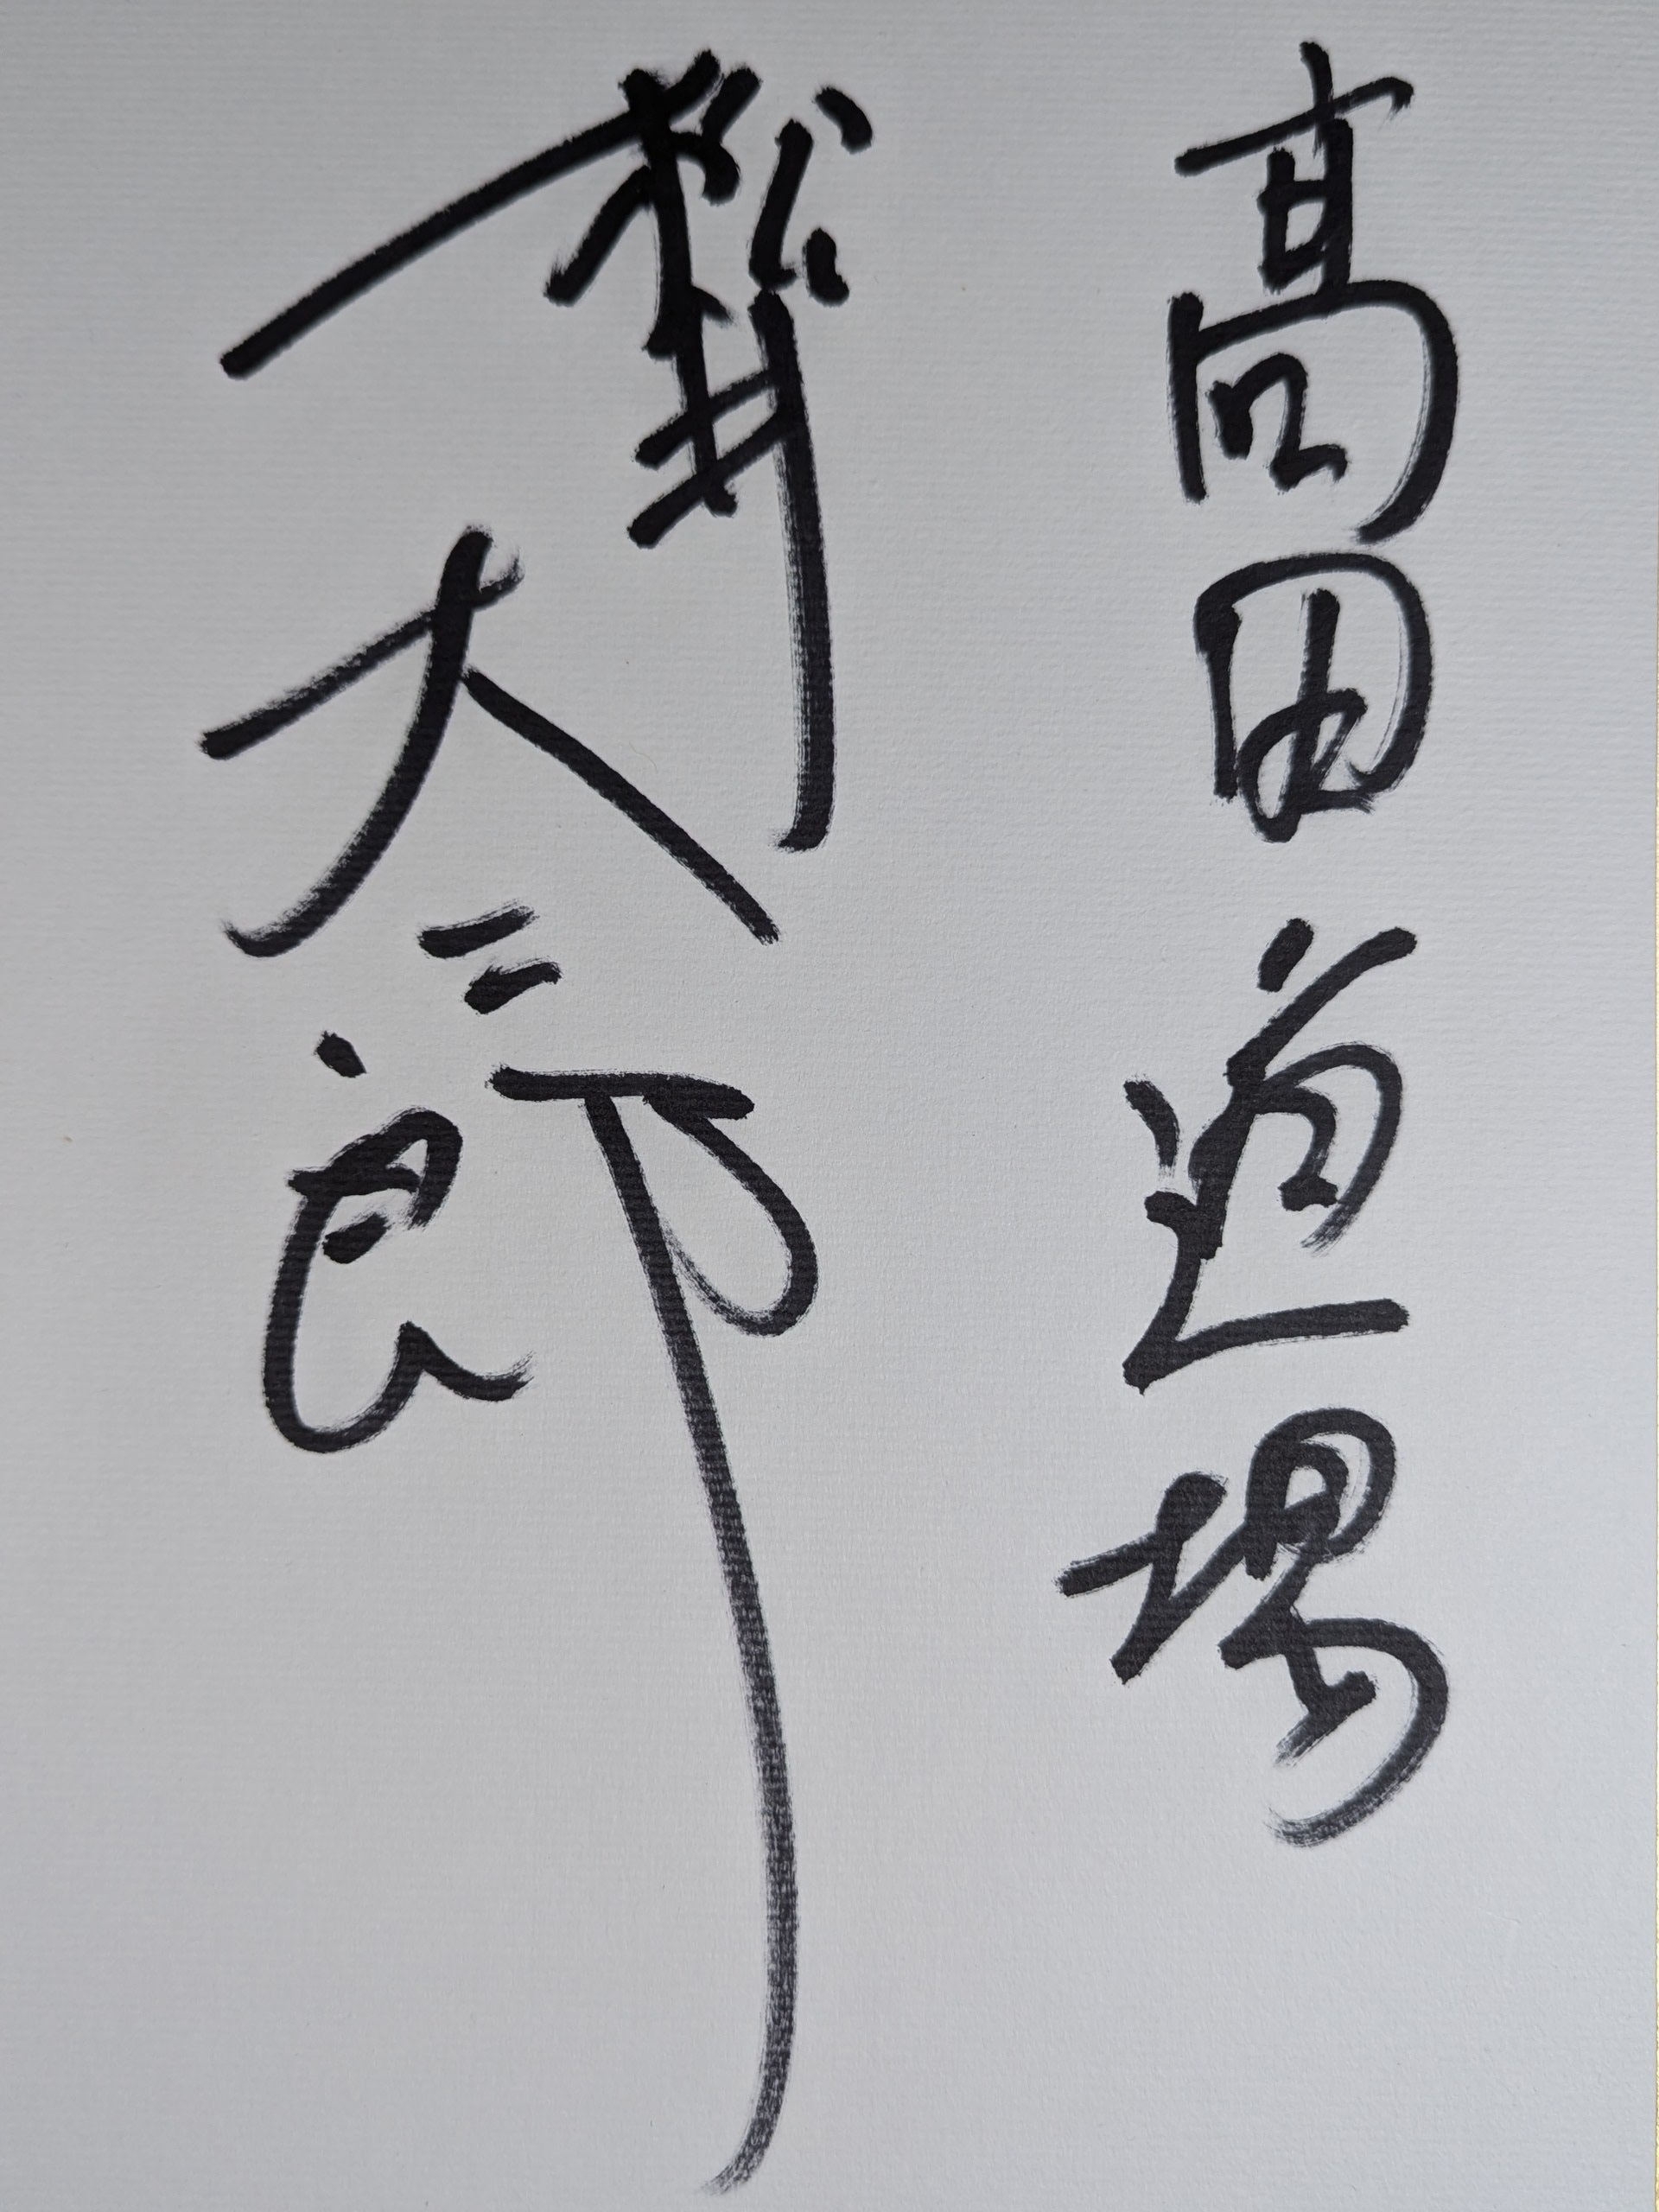 高田道場
松井大二郎